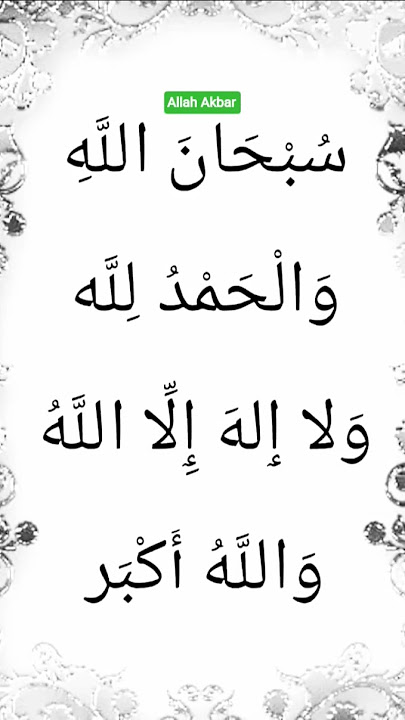 Allah Akbar
سُبْحَانَ اللَّهِ
وَالْحَمْدُ لِلَّه
وَلا إِلهَ إِلِّا اللَّهُ
وَاللَّهُ أَكْبَر